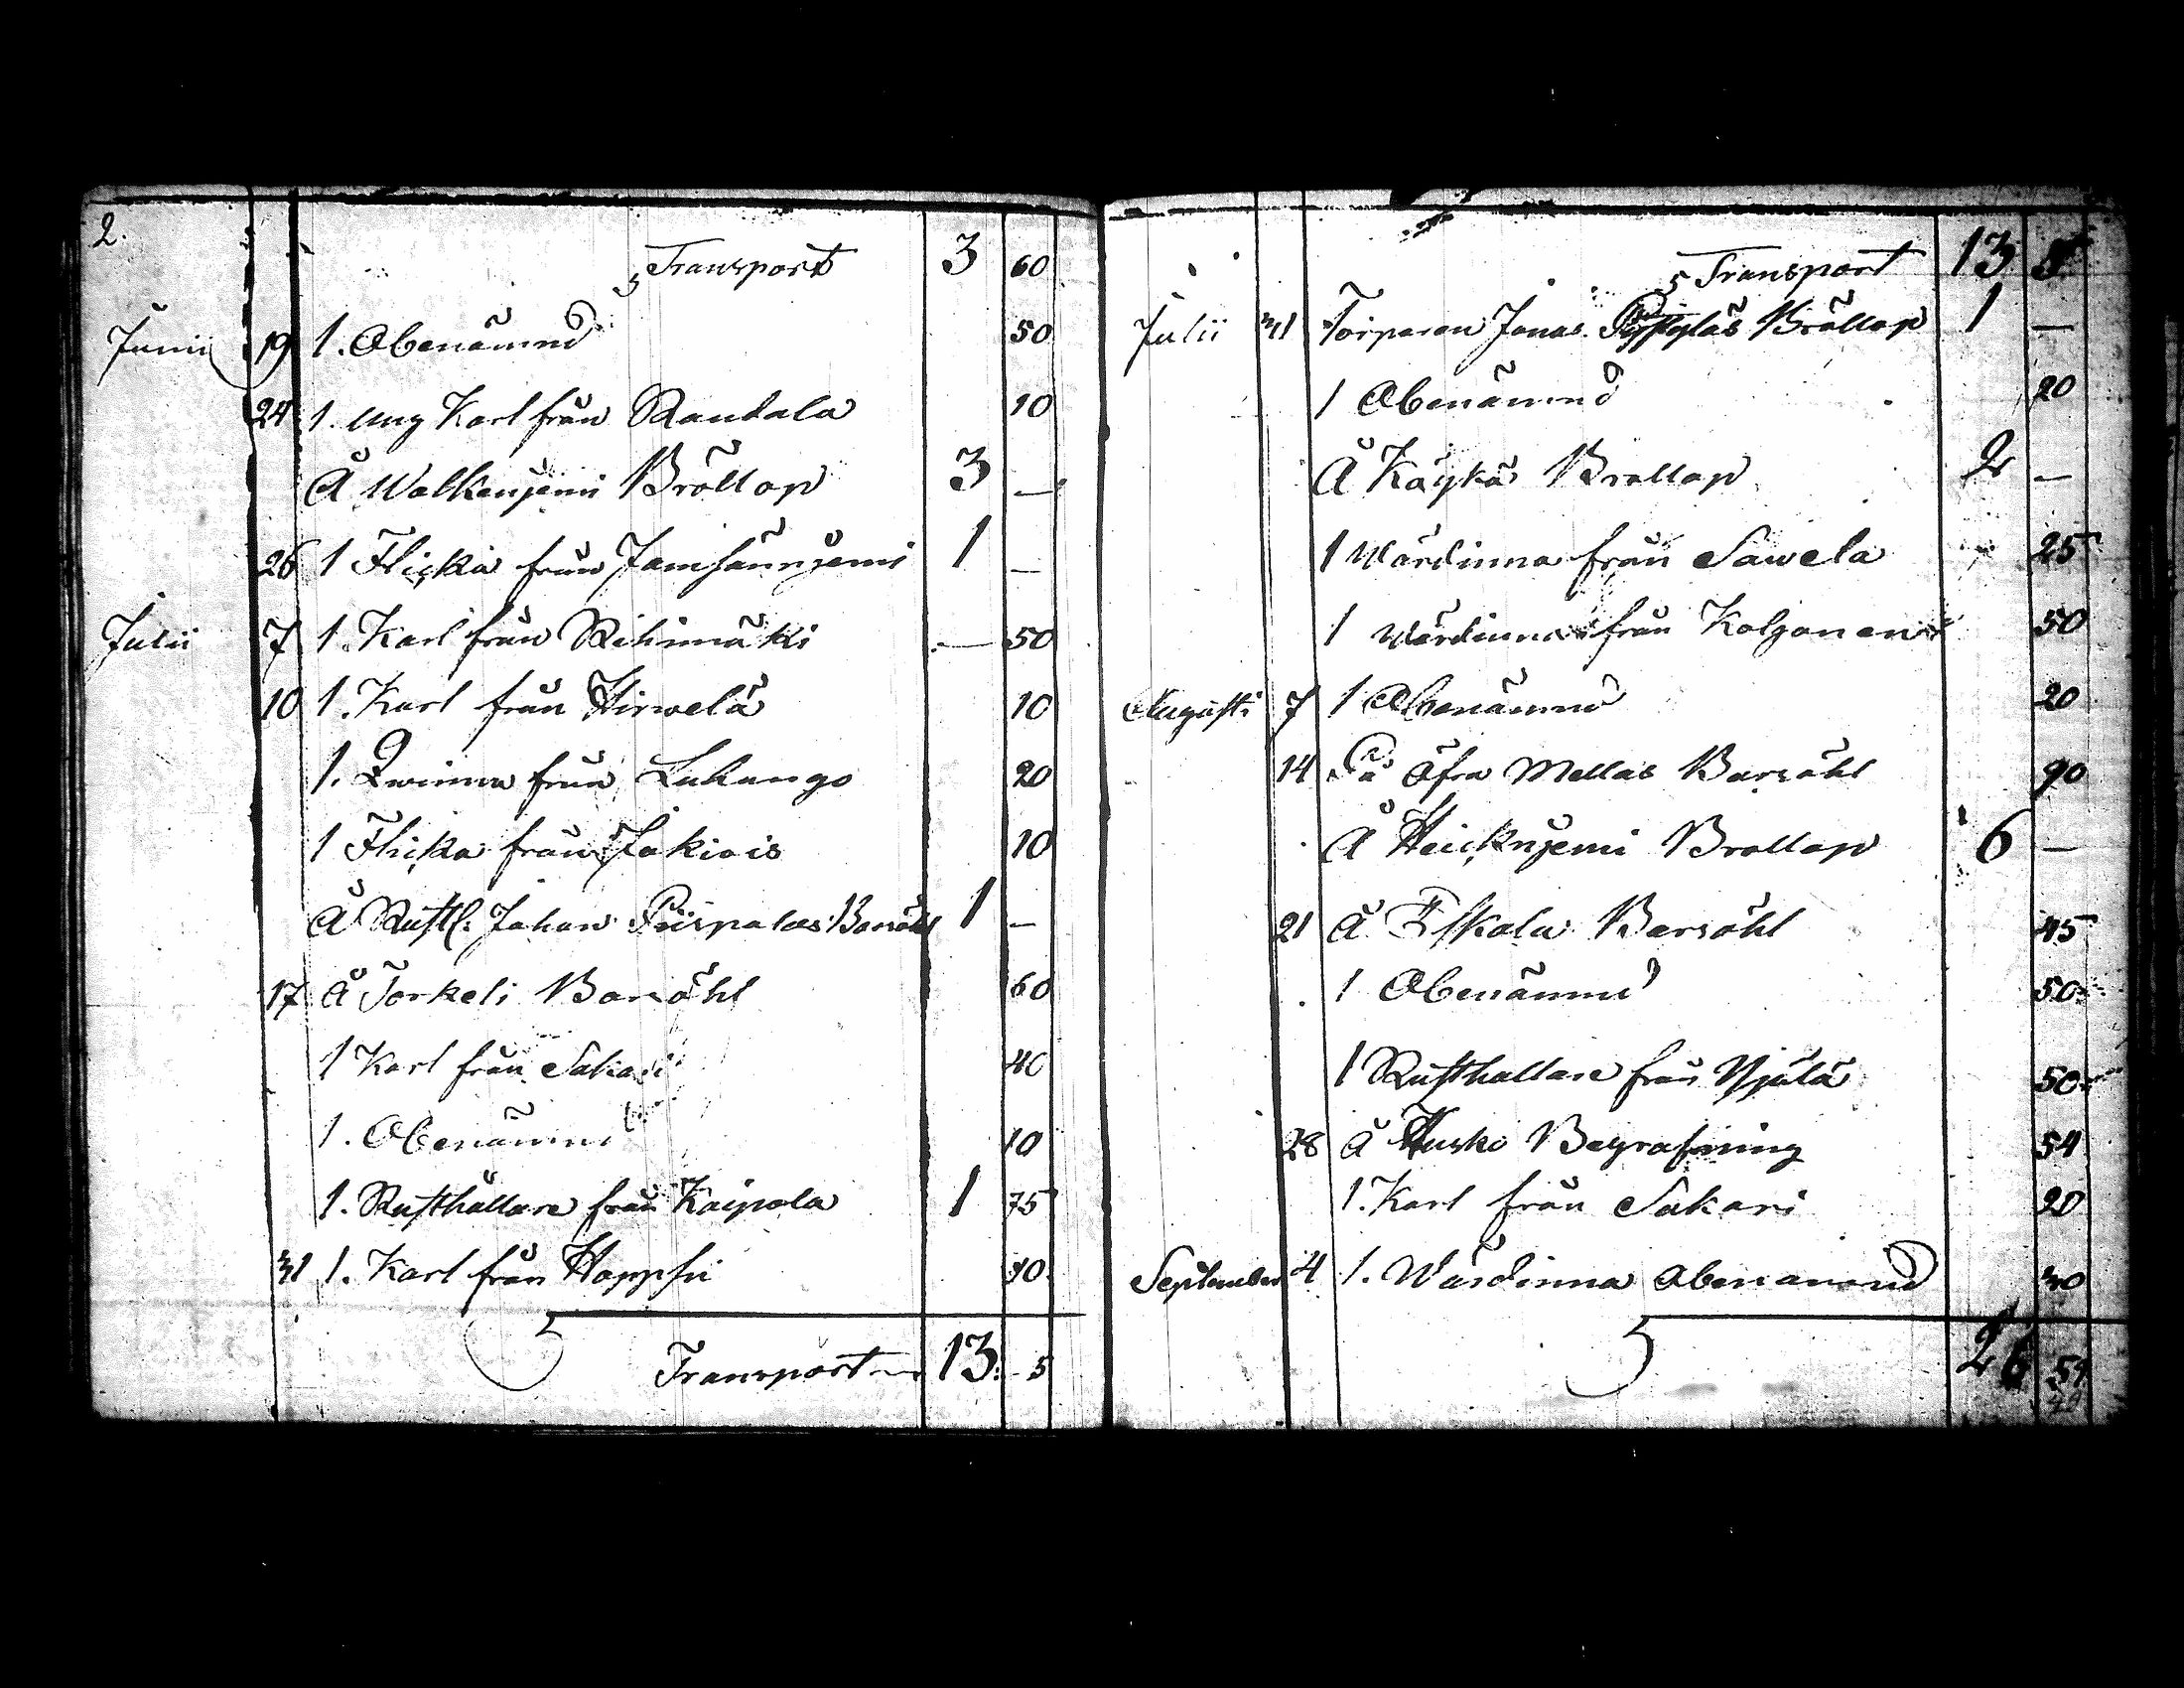 2.
Transport 3 60
Junii 19 1. Obenämnd 50
24 1. ung Karl från Rantala 10
Å Walkenjemi Bröllop 3 —
26 1 Flicka från Jamsännjemi 1 —
Julii 7 1. Karl från Rihimäki — 50
10 1. Karl från Hirwelä 10
1. Qwinna från Lukango 20
1 Flicka från Jokiois 10
Å Rustl: Johan Piispalas Barsöhl 1 —
17 Å Torkeli Barsöhl 60
1 Karl från Sakari 40
1. Obenämnd 10
1. Rusthållare från Kaipola 1 75
31 1. Karl från Hoppsu 10
Transport 13: 5
Transport 13 5
Julii 31 Torparen Jonas Bröllop 1 —
1 Obenämnd 20
Å Käykä Bröllop 2 —
1 Wärdinna från Sawela 25
1 Wärdinna från Koljonen 50
Augusti 7 1 Obenämnd 20
14 På Öfra Mellas Barsöhl 90
Å Heicknjemi Brollop 6 —
21 Å Eskola Barsöhl 45
1 Obenämnd 50
1 Rusthallare från Yjälä 50
28 Å Husko Begrafning 54
1. Karl från Sakari 20
September 4 1. Wärdinna Obenämnd 30
26 59